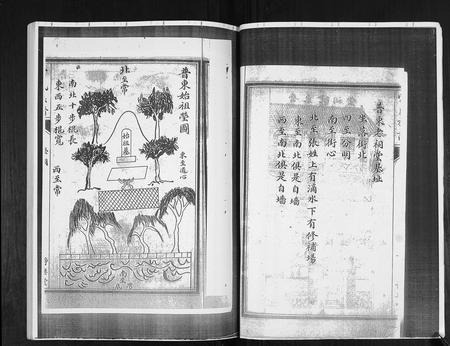 普東宗祠堂基址
坐落街北
四至分明
南至街心
北至張姓上有滴水下有修補場
東至南北俱是自墻
西至南北俱是自墻
普東始祖塋圖
北至常
東至道心
始祖墓
南北十步棍長
東西五步棍寬
西至常